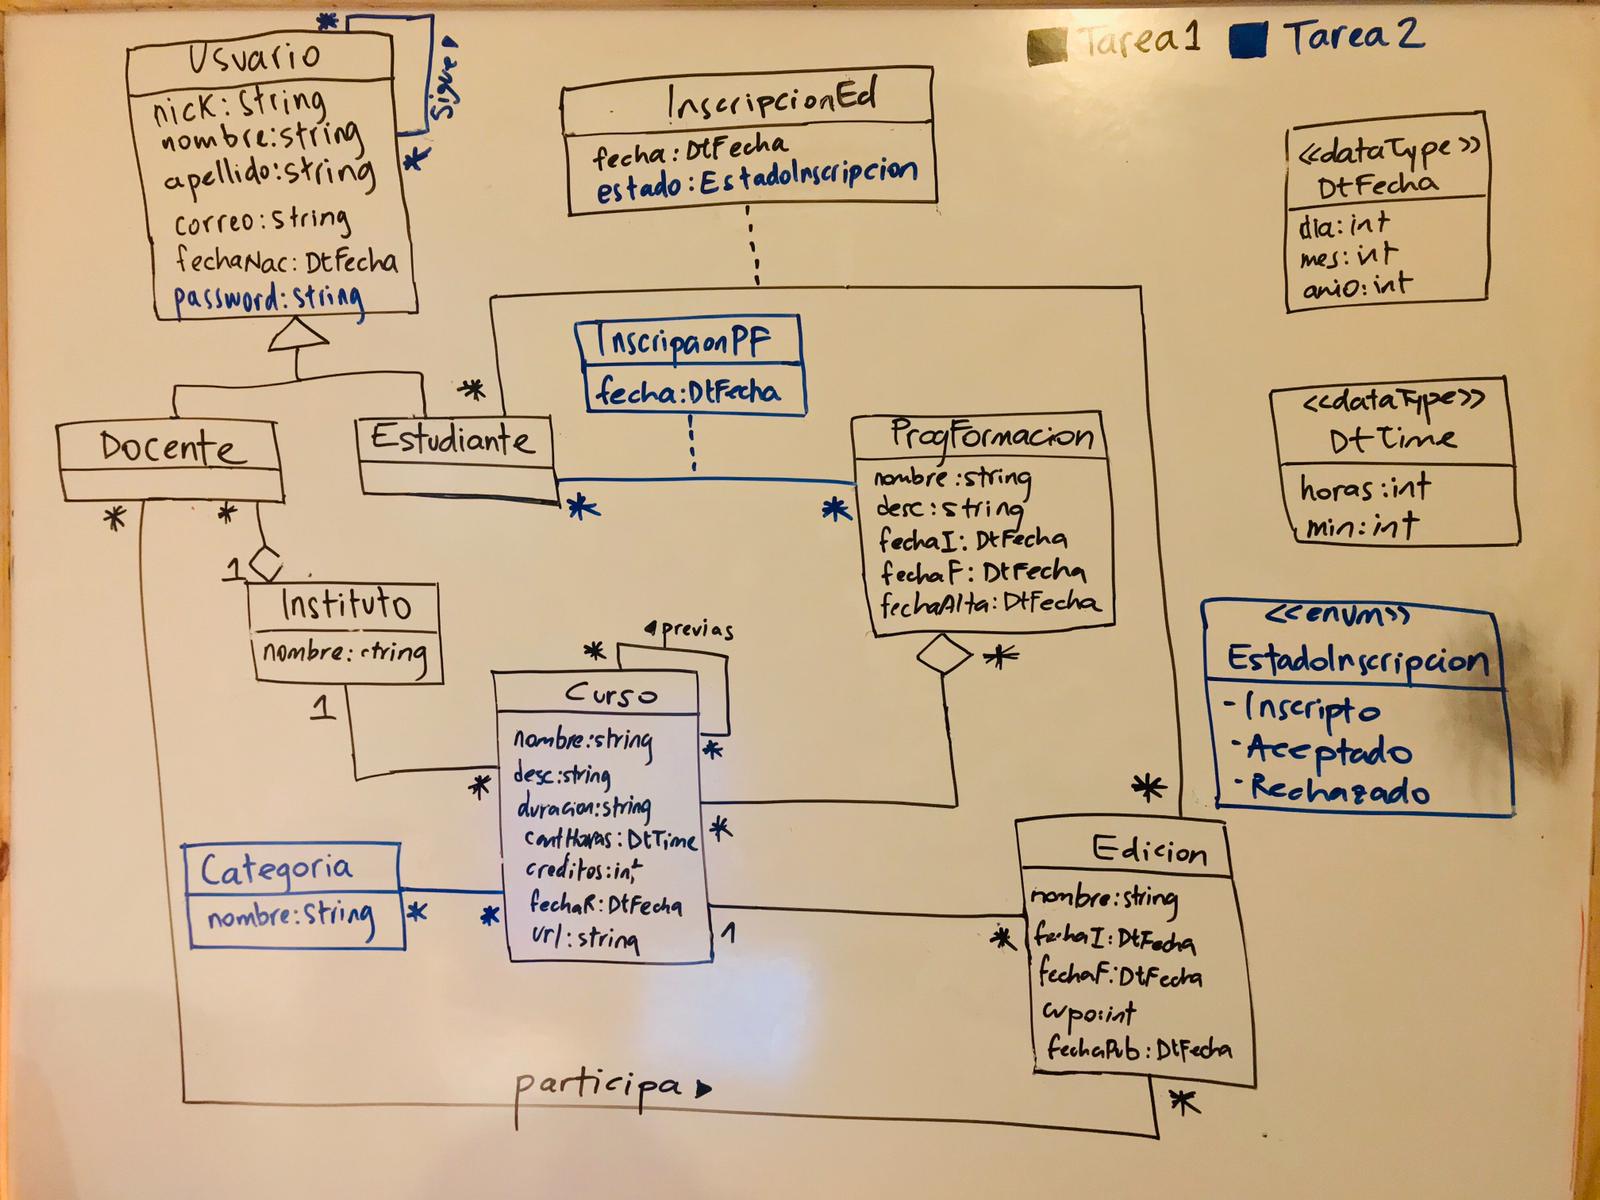 Tarea1
Tarea2
*
Sigue
*
Usuario
nick: string
nombre:string
apellido:string
correo:string
fechaNac: DtFecha
password:string
InscripcionEd
fecha:DtFecha
estado:EstadoInscripcion
<<dataType>>
DtFecha
dia:int
mes:int
anio:int
InscripcionPF
fecha:DtFecha
*
Docente
Estudiante
ProgFormacion
nombre:string
desc:string
fechaI: DtFecha
fechaF: DtFecha
fechaAlta:DtFecha
<<dataType>>
DtTime
horas:int
min:int
*
*
*
*
1
Instituto
nombre:string
1
<<enum>>
EstadoInscripcion
-Inscripto
-Aceptado
-Rechazado
previas
*
*
*
Curso
nombre:string
desc:string
duracion:string
cantHoras: DtTime
creditos:int
fechaR:DtFecha
url:string
*
*
*
Categoria
nombre:string
*
*
1
*
Edicion
nombre:string
fechaI:DtFecha
fechaF:DtFecha
cupo:int
fechaPub:DtFecha
participa
*